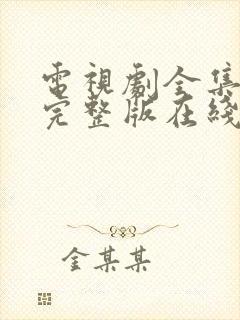 電視劇全集
完整版在綫
金某某